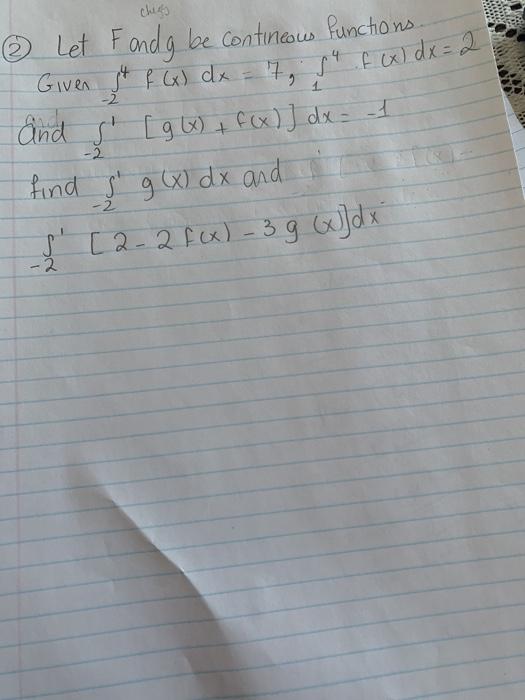 chegg
② Let F and g be contineous functions.
Given ∫₋₂⁴ f(x) dx = 7, ∫₁⁴ f(x) dx = 2
and ∫₋₂¹ [g(x) + f(x)] dx = -1
find ∫₋₂¹ g(x) dx and
∫₋₂¹ [2 - 2f(x) - 3g(x)] dx